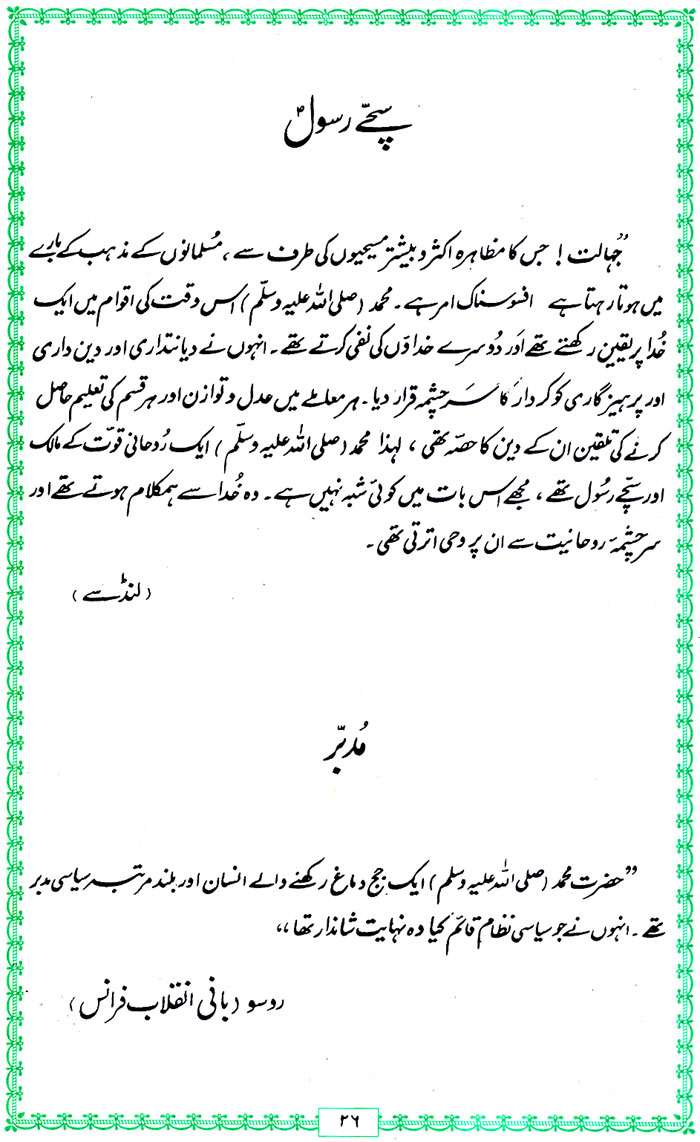 سچّے رسولؐ
”جہالت! جس کا مظاہرہ اکثر و بیشتر مسیحیوں کی طرف سے، مُسلمانوں کے مذہب کے بارے
میں ہوتا رہتا ہے افسوسناک امر ہے۔ محمد (صلی اللہ علیہ وسلّم) اس وقت کی اقوام میں ایک
خُدا پر یقین رکھتے تھے اور دُوسرے خداؤں کی نفی کرتے تھے۔ انہوں نے دیانتداری اور دین داری
اور پرہیزگاری کو کردار کا سَرچشمہ قرار دیا۔ ہر معاملے میں عدل و توازن اور ہر قسم کی تعلیم حاصل
کرنے کی تلقین ان کے دین کا حصّہ تھی، لہٰذا محمد (صلی اللہ علیہ وسلّم) ایک رُوحانی قوّت کے مالک
اور سچّے رسُول تھے، مجھے اس بات میں کوئی شبہ نہیں ہے۔ وہ خُدا سے ہمکلام ہوتے تھے اور
سرچشمۂ روحانیت سے ان پر وحی اترتی تھی۔
(لنڈسے)
مُدبّر
”حضرت محمد (صلی اللہ علیہ وسلم) ایک جج دماغ رکھنے والے انسان اور بلند مرتبہ سیاسی مدبر
تھے۔ انہوں نے جو سیاسی نظام قائم کیا وہ نہایت شاندار تھا“
روسو (بانی انقلاب فرانس)
۲۶